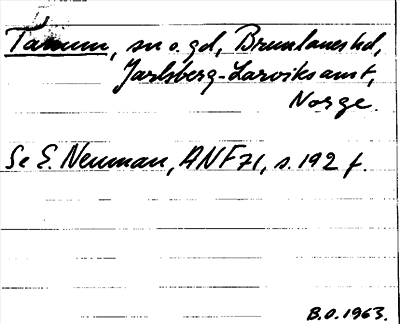 Tanum, sn o. gd, Brunlanes hd,
Jarlsberg-Larviks amt,
Norge.
Se E. Neuman, ANF 71, s. 192 f.
B.O. 1963.